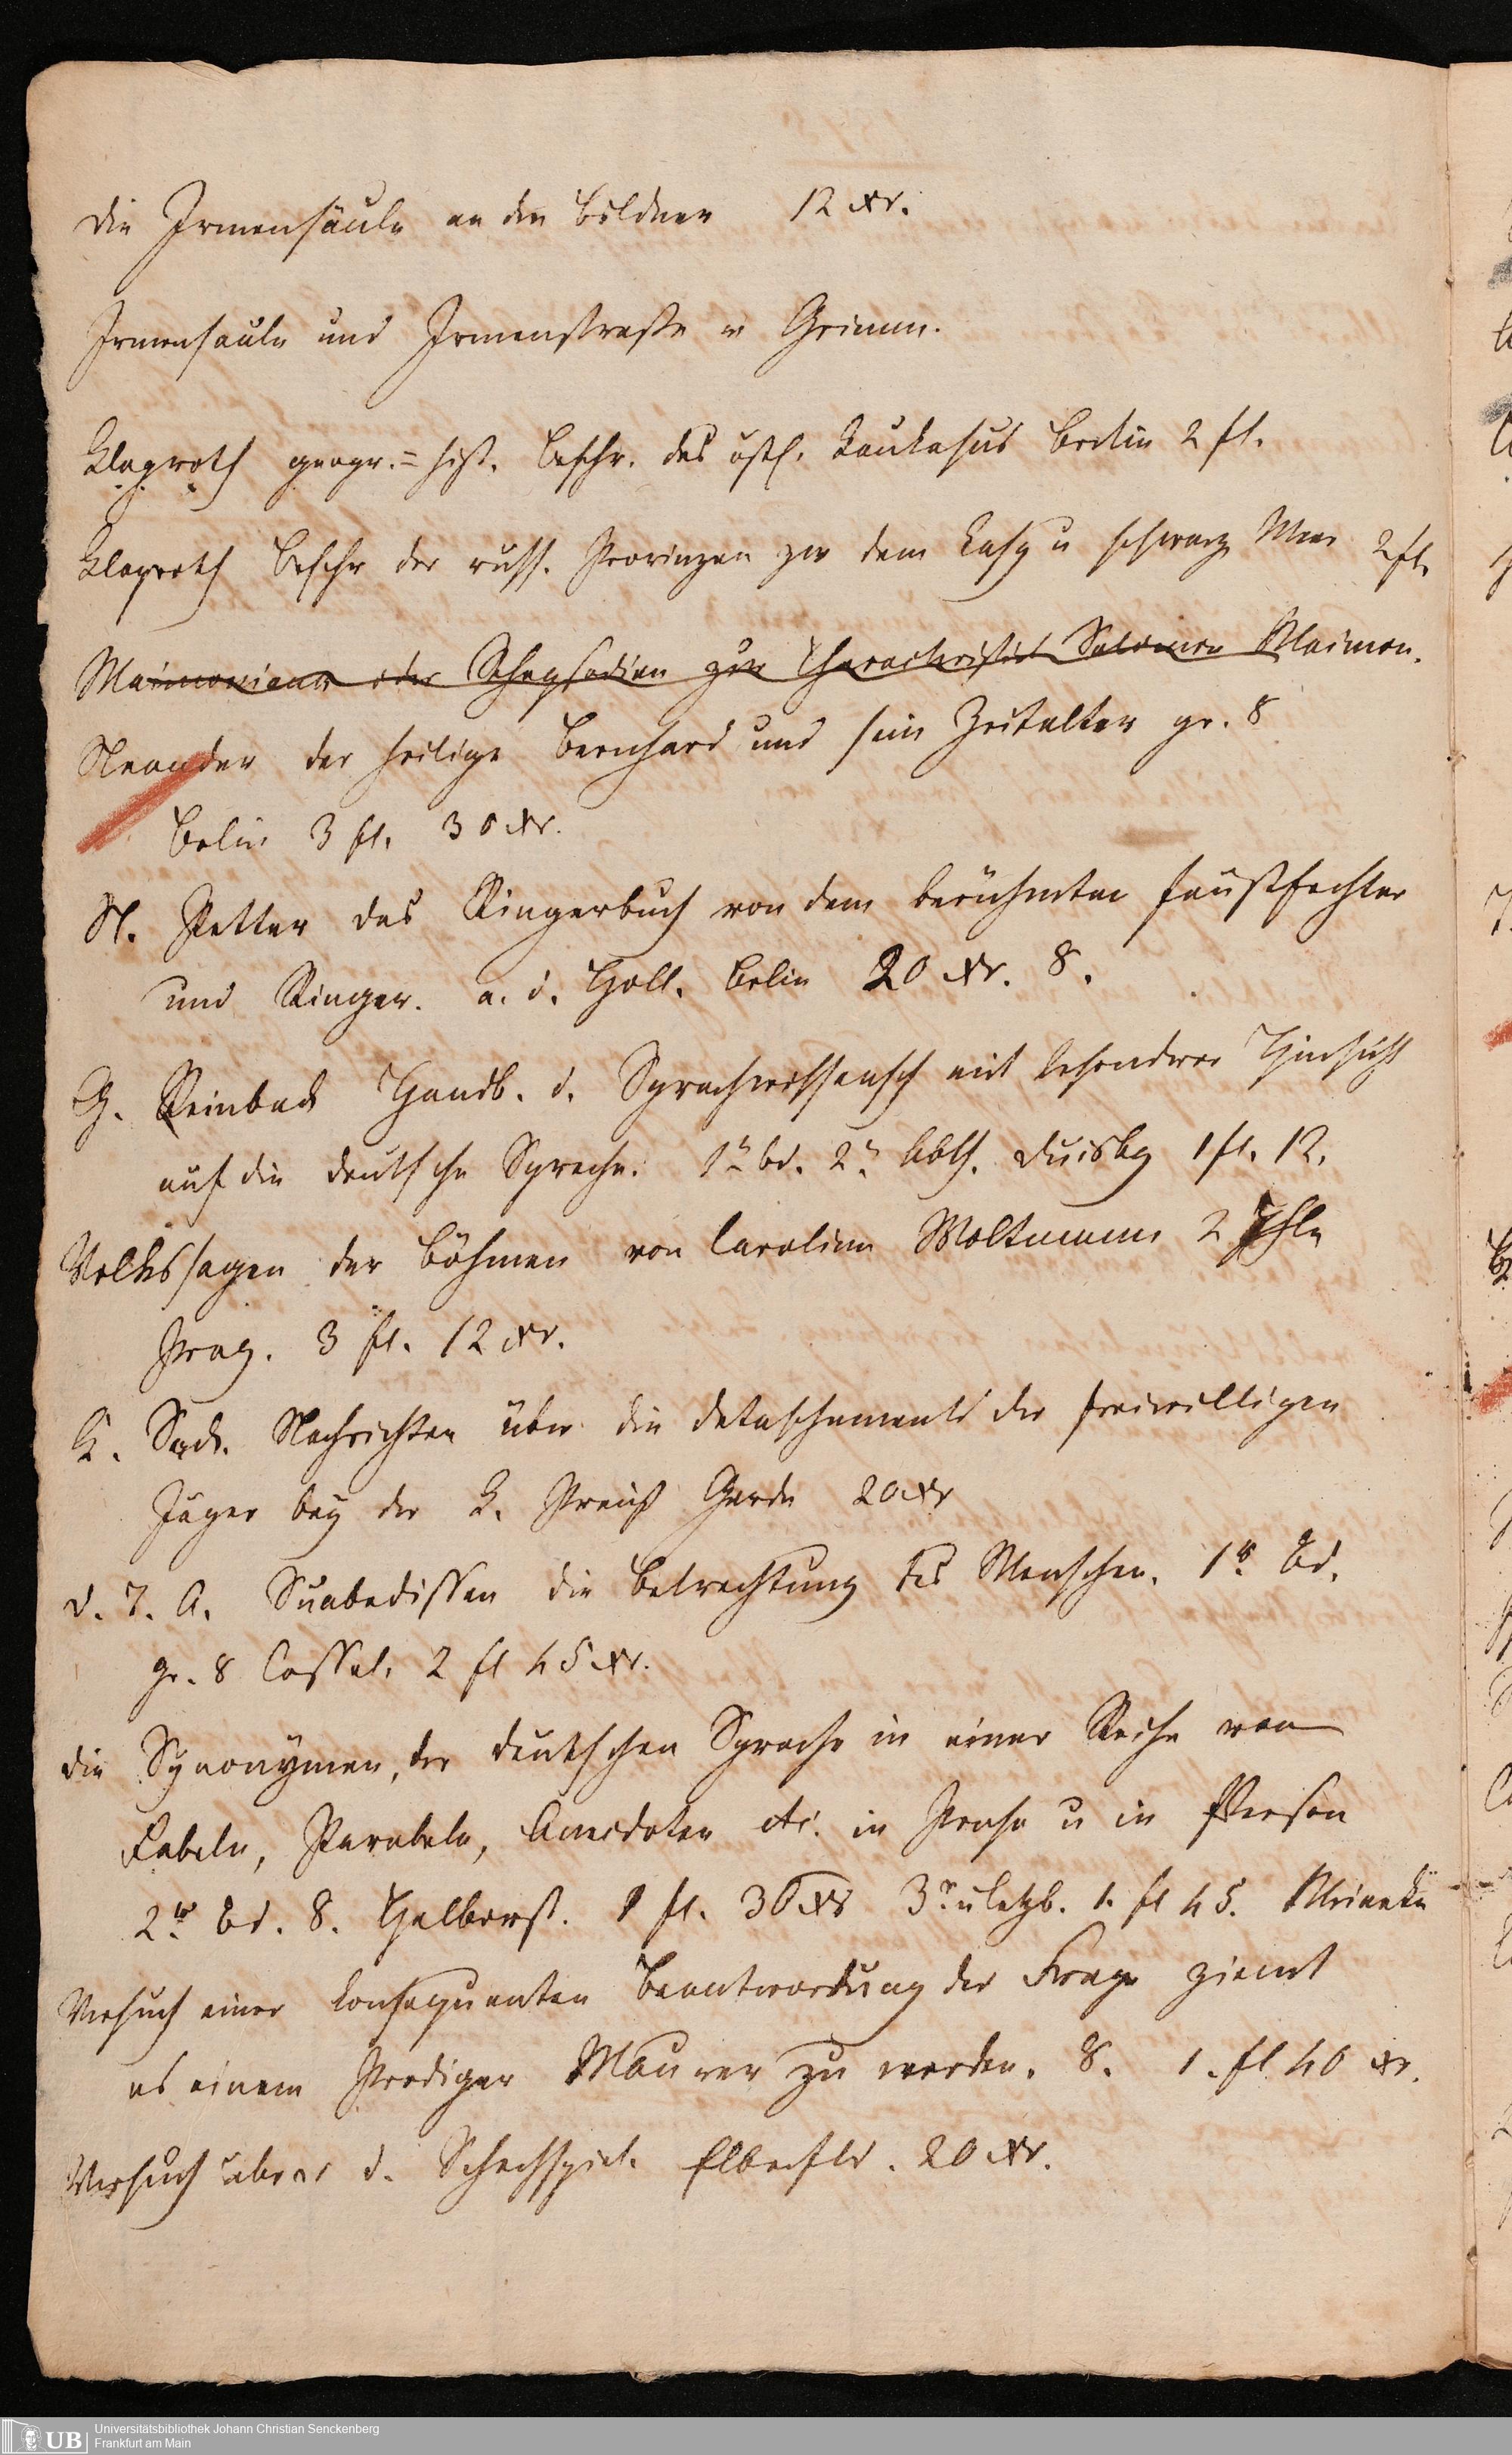 die Irmensäule an den Bildner 12 xr.
Irmensäule und Irmenstraße v Grimm.
Klaproth geogr.= hist. Beschr. des östl. Kaukasus Berlin 2 fl.
Klaproth Beschr der russ. Provinzen zw dem kasp u schwarz Meer 2 fl.
Maimoniana oder Rhapsodien zur Characteristik Salomon Maimon.
Neander der heilige Bernhard und sein Zeitalter gr. 8
Berlin 3 fl. 30 xr.
N. Petter das Ringerbuch von dem berühmten Faustfechter
und Ringer. a. d. Holl. Berlin 20 xr. 8.
G. Reinbeck Handb. d. Sprachwissensch mit besondrer Hinsicht
auf die deutsche Sprache. 1r bd. 2r Abth. Duisbg 1 fl. 12.
Volkssagen der Böhmen von Caroline Woltmann 2 Thle
Prag. 3 fl. 12 xr.
K. Sack. Nachrichten über die Detaschements der freiwilligen
Jäger bey der K. Preuß Garde 20 xr
D. T. A. Suabedissen die Betrachtung des Menschen. 1r Bd.
gr. 8 Cassel. 2 fl 45 xr.
die Synonymen, der deutschen Sprache in einer Reihe von
Fabeln, Parabeln, Anecdoten etc. in Prosa u in Versen
2r Bd. 8. Halberst. 1 fl. 30 xr 3r u letzb. 1. fl 45. Meineke
Versuch einer konsequenten Beantwortung der Frage ziemt
es einem Prediger Maurer zu werden. 8. 1. fl 40 xr.
Versuch über d. Schachspiel. Elberfeld. 20 xr.
UB Universitätsbibliothek Johann Christian Senckenberg
Frankfurt am Main